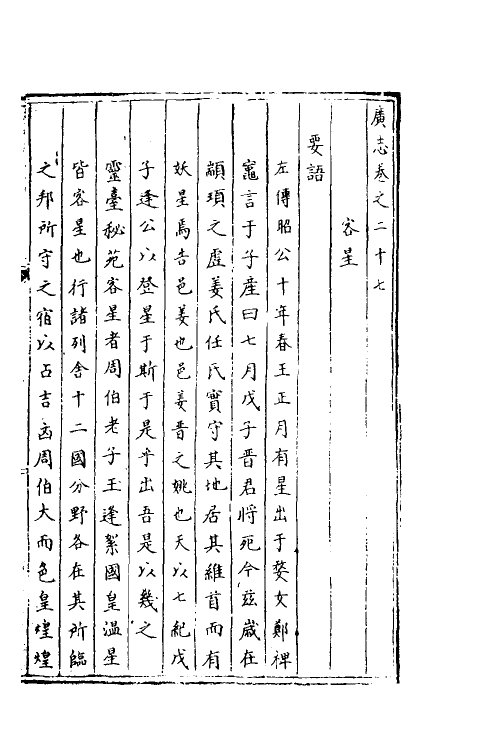 廣志卷之二十七
客星
要語
左傳昭公十年春王正月有星出于婺女鄭裨
竈言于子産曰七月戊子晋君将死今玆歳在
顓頊之虛姜氏任氏實守其地居其維首而有
妖星焉告邑姜也邑姜晋之姚也天以七紀戊
子逢公以登星于斯于是乎出吾是以幾之
靈臺秘苑客星者周伯老子王逢絮國皇温星
皆客星也行諸列舍十二國分野各在其所臨
之邦所守之宿以占吉凶周伯大而色皇煌煌